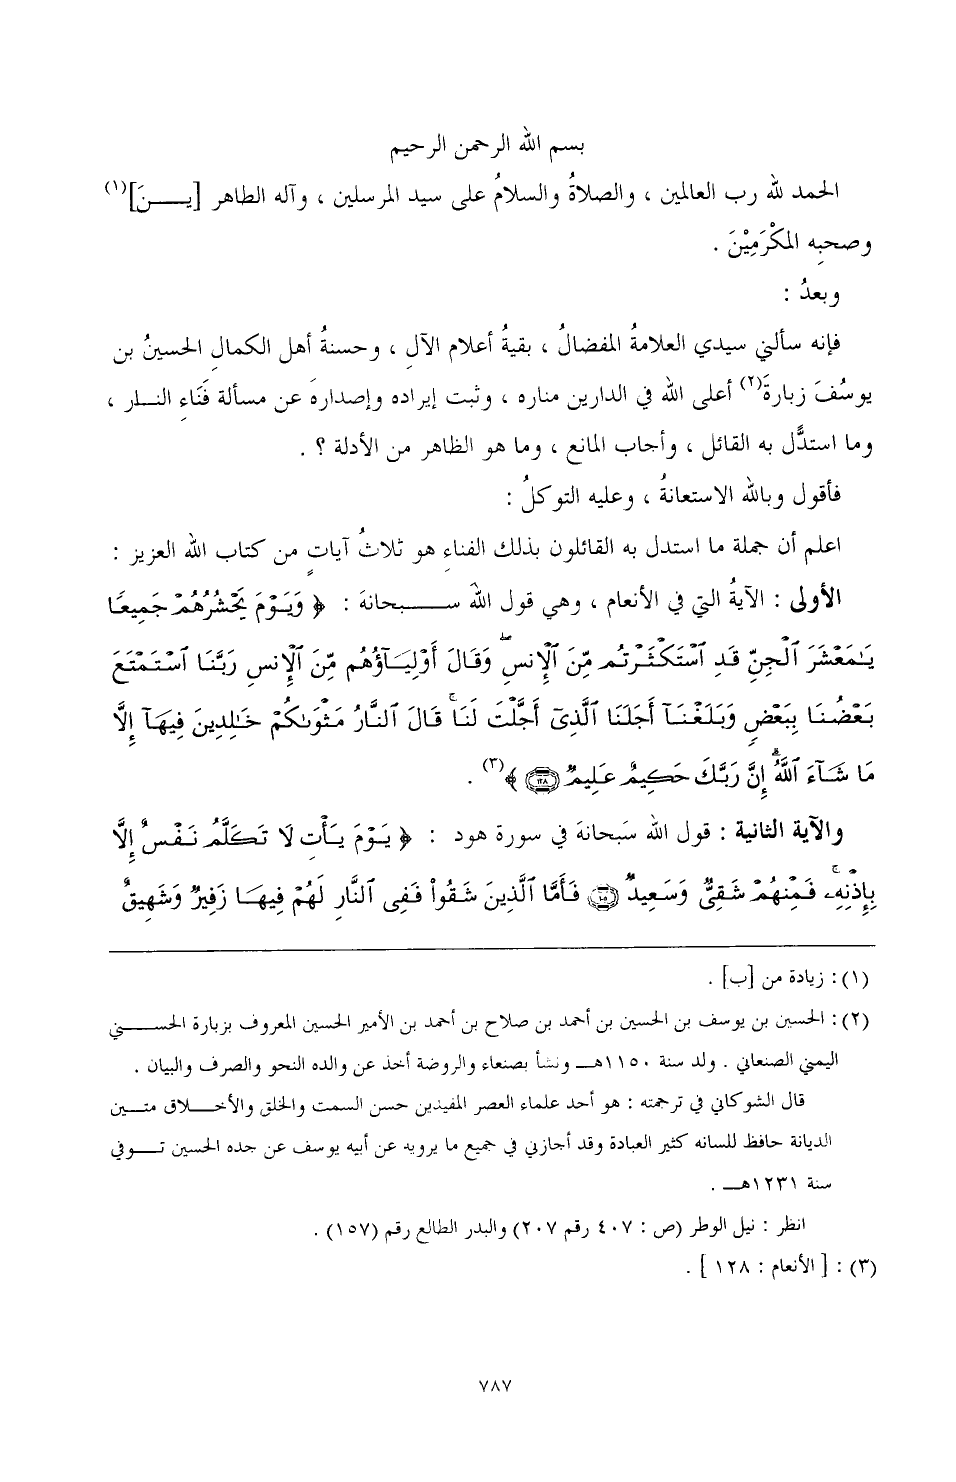 بسم الله الرحمن الرحيم
الحمد لله رب العالمين ، والصلاةُ والسلامُ على سيد المرسلين ، وآله الطاهر [يــنَ](١)
وصحبِه المكْرَمِيْنَ .
وبعدُ :
فإنه سألني سيدي العلامةُ المفضالُ ، بقيةُ أعلام الآلِ ، وحسنةُ أهل الكمالِ الحسينُ بن
يوسُفَ زبارةَ(٢) أعلى الله في الدارين مناره ، وثبت إيراده وإصدارهَ عن مسألة فَنَاءِ النــار ،
وما استدلَّ به القائل ، وأجاب المانع ، وما هو الظاهر من الأدلة ؟ .
فأقول وبالله الاستعانةُ ، وعليه التوكلُ :
اعلم أن جملة ما استدل به القائلون بذلك الفناءِ هو ثلاثُ آياتٍ من كتاب الله العزيز :
الأولى : الآيةُ التي في الأنعام ، وهي قول الله ســـبحانهَ : ﴿ وَيَوْمَ يَحْشُرُهُمْ جَمِيعًا
يَـٰمَعْشَرَ ٱلْجِنِّ قَدِ ٱسْتَكْثَرْتُم مِّنَ ٱلْإِنسِ ۖ وَقَالَ أَوْلِيَآؤُهُم مِّنَ ٱلْإِنسِ رَبَّنَا ٱسْتَمْتَعَ
بَعْضُنَا بِبَعْضٍ وَبَلَغْنَآ أَجَلَنَا ٱلَّذِىٓ أَجَّلْتَ لَنَا ۚ قَالَ ٱلنَّارُ مَثْوَىٰكُمْ خَـٰلِدِينَ فِيهَآ إِلَّا
مَا شَآءَ ٱللَّهُ ۗ إِنَّ رَبَّكَ حَكِيمٌ عَلِيمٌ ١٢٨ ﴾(٣) .
والآية الثانية : قول الله سَبحانهَ في سورة هود : ﴿ يَوْمَ يَأْتِ لَا تَكَلَّمُ نَفْسٌ إِلَّا
بِإِذْنِهِۦ ۚ فَمِنْهُمْ شَقِىٌّ وَسَعِيدٌ ١٠٥ فَأَمَّا ٱلَّذِينَ شَقُوا۟ فَفِى ٱلنَّارِ لَهُمْ فِيهَا زَفِيرٌ وَشَهِيقٌ
(١) : زيادة من [ب] .
(٢) : الحسين بن يوسف بن الحسين بن أحمد بن صلاح بن أحمد بن الأمير الحسين المعروف بزبارة الحســـني
اليمني الصنعاني . ولد سنة ١١٥٠هــ ونشأ بصنعاء والروضة أخذ عن والده النحو والصرف والبيان .
قال الشوكاني في ترجمته : هو أحد علماء العصر المفيدين حسن السمت والخلق والأخـــلاق متــين
الديانة حافظ للسانه كثير العبادة وقد أجازني في جميع ما يرويه عن أبيه يوسف عن جده الحسين تـــوفي
سنة ١٢٣١هــ .
انظر : نيل الوطر (ص : ٤٠٧ رقم ٢٠٧) والبدر الطالع رقم (١٥٧) .
(٣) : [ الأنعام : ١٢٨ ] .
٧٨٧